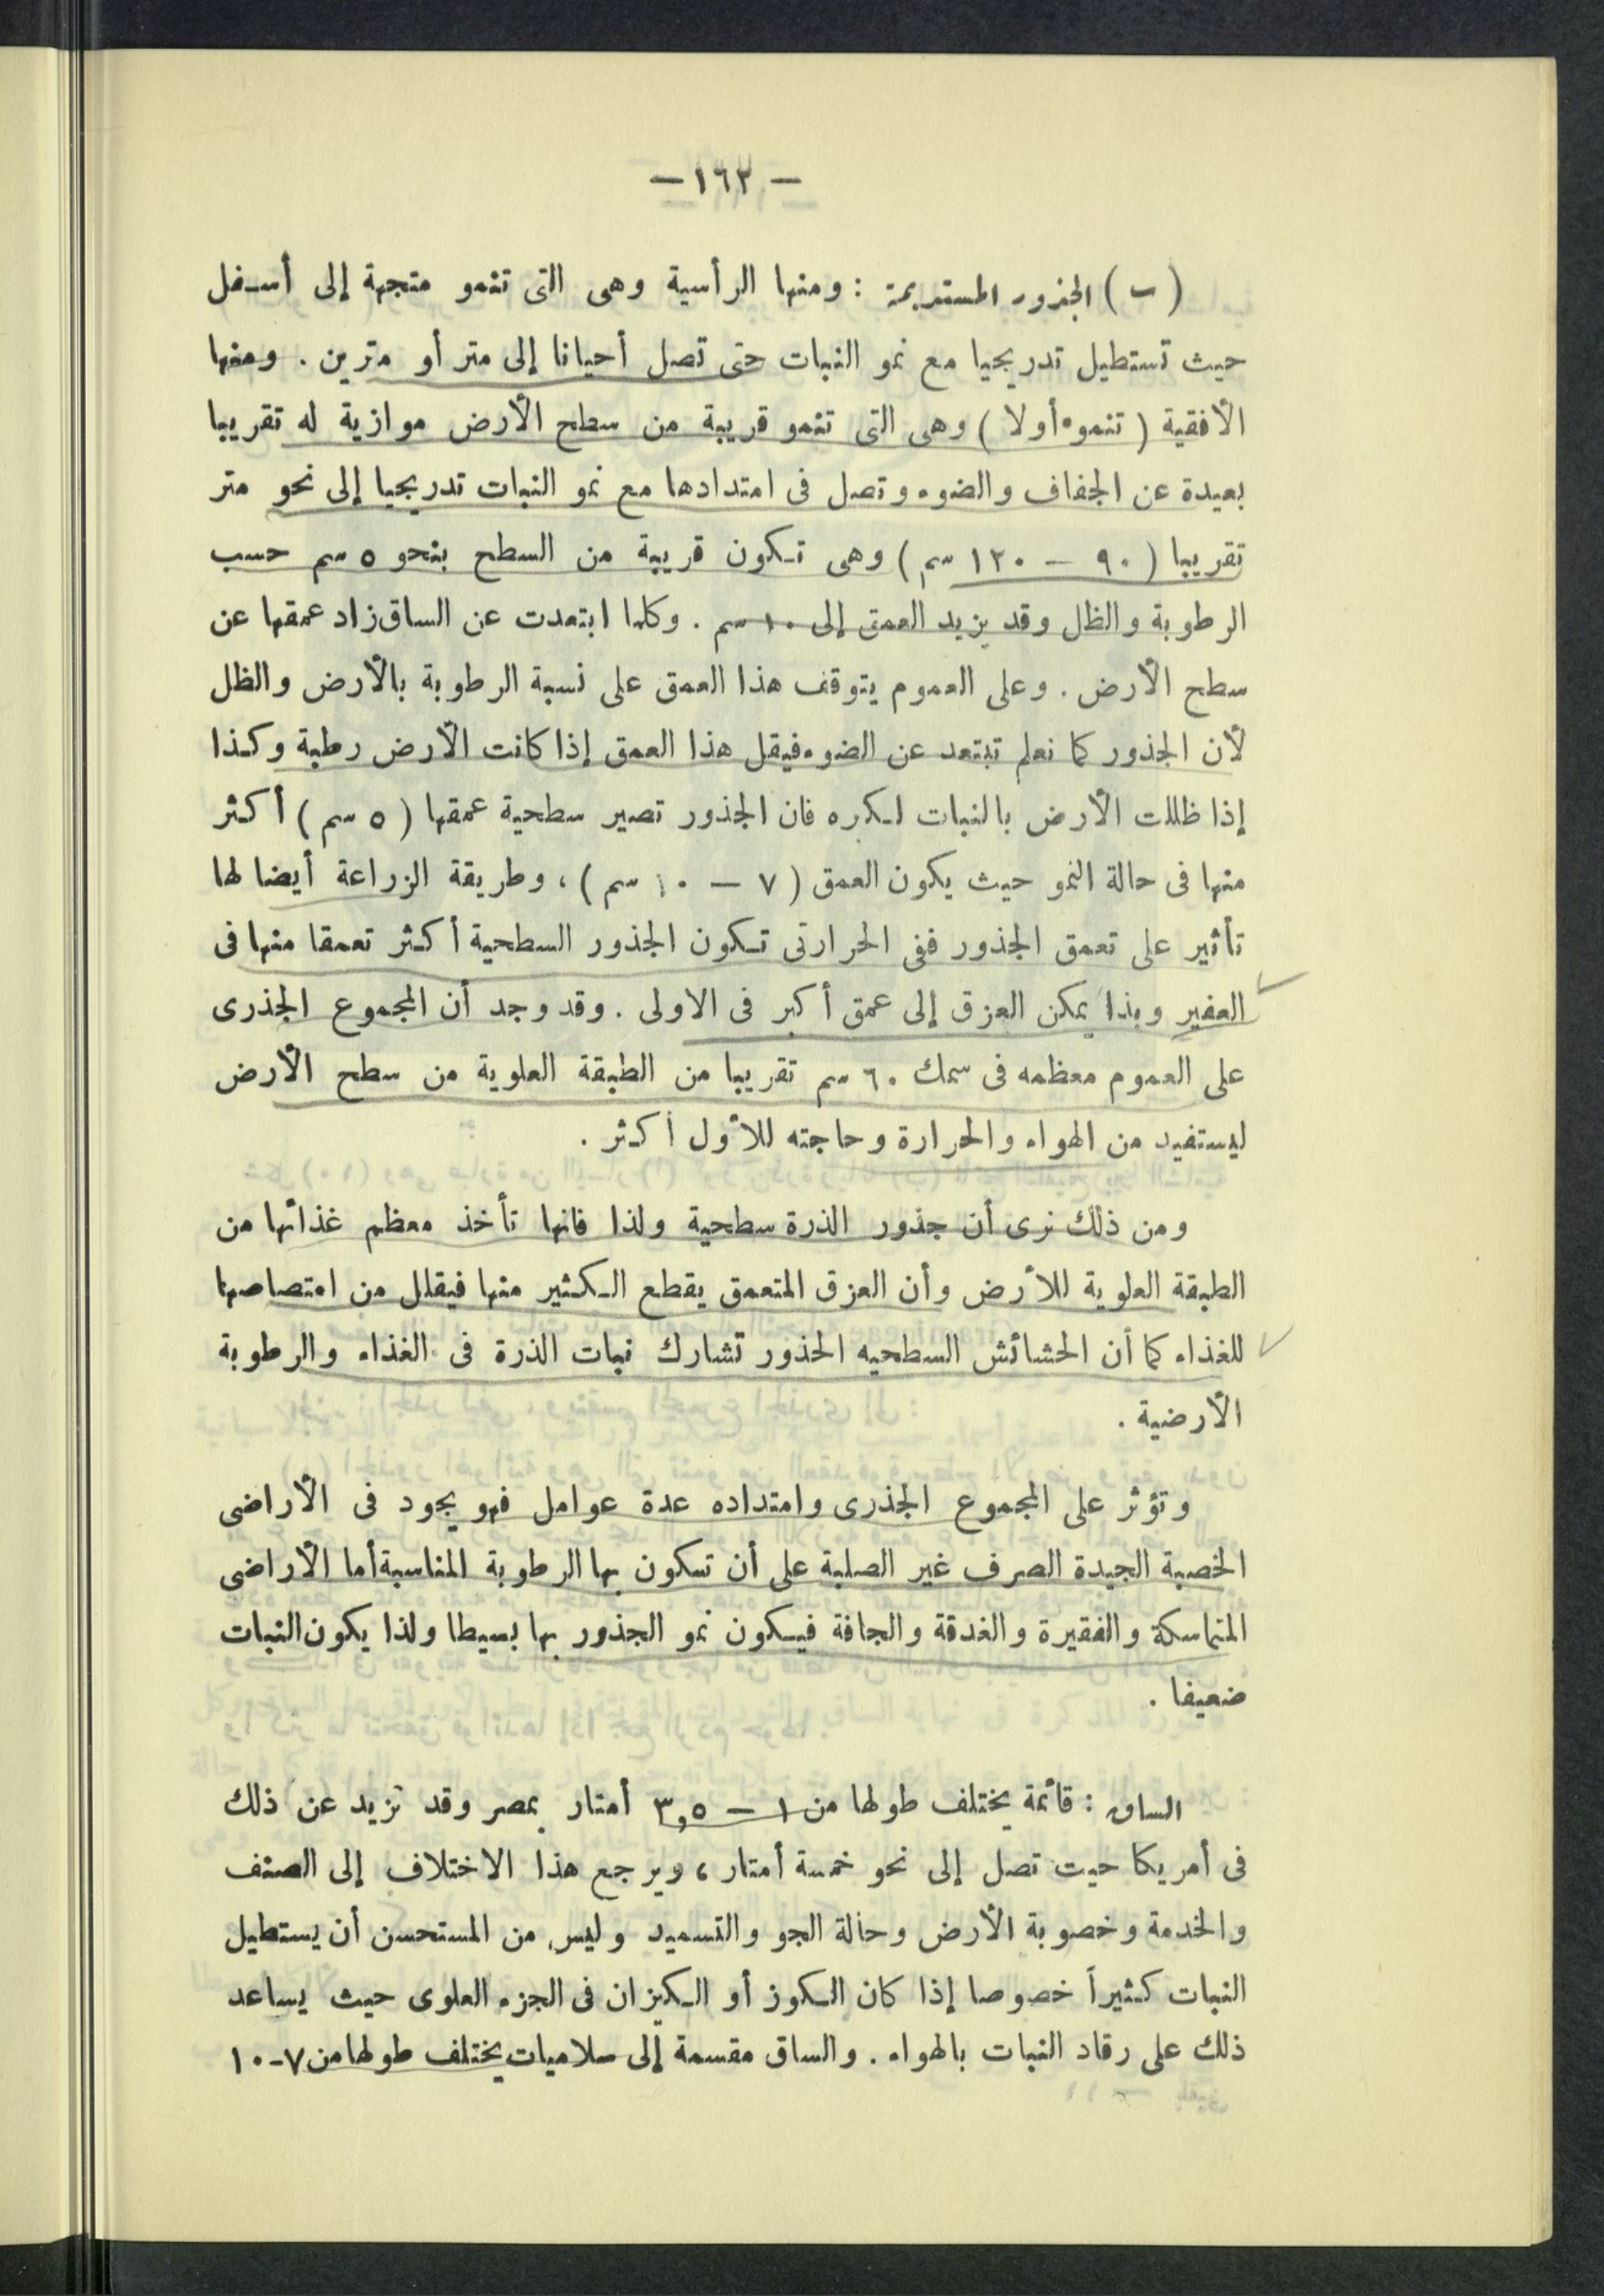 — ١٦٢ —
(ب) الجذور المستديمة : ومنها الرأسية وهى التى تنمو متجهة إلى أسفل
حيث تستطيل تدريجيا مع نمو النبات حتى تصل أحيانا إلى متر أو مترين . ومنها
الأفقية ( تنموء أولا ) وهى التى تنمو قريبة من سطح الأرض موازية له تقريبا
بعيدة عن الجفاف والضوء وتصل فى امتدادها مع نمو النبات تدريجيا إلى نحو متر
تقريبا ( ٩٠ — ١٢٠ سم ) وهى تكون قريبة من السطح بنحو ٥ سم حسب
الرطوبة والظل وقد يزيد العمق إلى ١٠ سم . وكلما ابتعدت عن الساق زاد عمقها عن
سطح الأرض . وعلى العموم يتوقف هذا العمق على نسبة الرطوبة بالأرض والظل
لأن الجذور كما نعلم تبتعد عن الضوء فيقل هذا العمق إذا كانت الأرض رطبة وكذا
إذا ظللت الأرض بالنبات لكبره فان الجذور تصير سطحية عمقها ( ٥ سم ) أكثر
منها فى حالة النمو حيث يكون العمق ( ٧ — ١٠ سم ) ، وطريقة الزراعة أيضا لها
تأثير على تعمق الجذور ففى الحراتى تكون الجذور السطحية أكثر تعمقا منها فى
العفير وبذا يمكن العزق إلى عمق أكبر فى الاولى . وقد وجد أن المجموع الجذرى
على العموم معظمه فى سمك ٦٠ سم تقريبا من الطبقة العلوية من سطح الأرض
ليستفيد من الهواء والحرارة وحاجته للأول أكثر .
ومن ذلك نرى أن جذور الذرة سطحية ولذا فانها تأخذ معظم غذائها من
الطبقة العلوية للأرض وأن العزق المتعمق يقطع الكثير منها فيقلل من امتصاصها
للغذاء كما أن الحشائش السطحيه الجذور تشارك نبات الذرة فى الغذاء والرطوبة
الأرضية .
وتؤثر على المجموع الجذرى وامتداده عدة عوامل فهو يجود فى الأراضى
الخصبة الجيدة الصرف غير الصلبة على أن تكون بها الرطوبة المناسبة أما الأراضى
المتماسكة والفقيرة والغدقة والجافة فيكون نمو الجذور بها بسيطا ولذا يكون النبات
ضعيفا .
الساق : قائمة يختلف طولها من ١ — ٣,٥ أمتار بمصر وقد تزيد عن ذلك
فى أمريكا حيت تصل إلى نحو خمسة أمتار ، ويرجع هذا الاختلاف إلى الصنف
والخدمة وخصوبة الأرض وحالة الجو والتسميد وليس من المستحسن أن يستطيل
النبات كثيراً خصوصا إذا كان الكوز أو الكيزان فى الجزء العلوى حيث يساعد
ذلك على رقاد النبات بالهواء . والساق مقسمة إلى سلاميات يختلف طولها من ٧-١٠